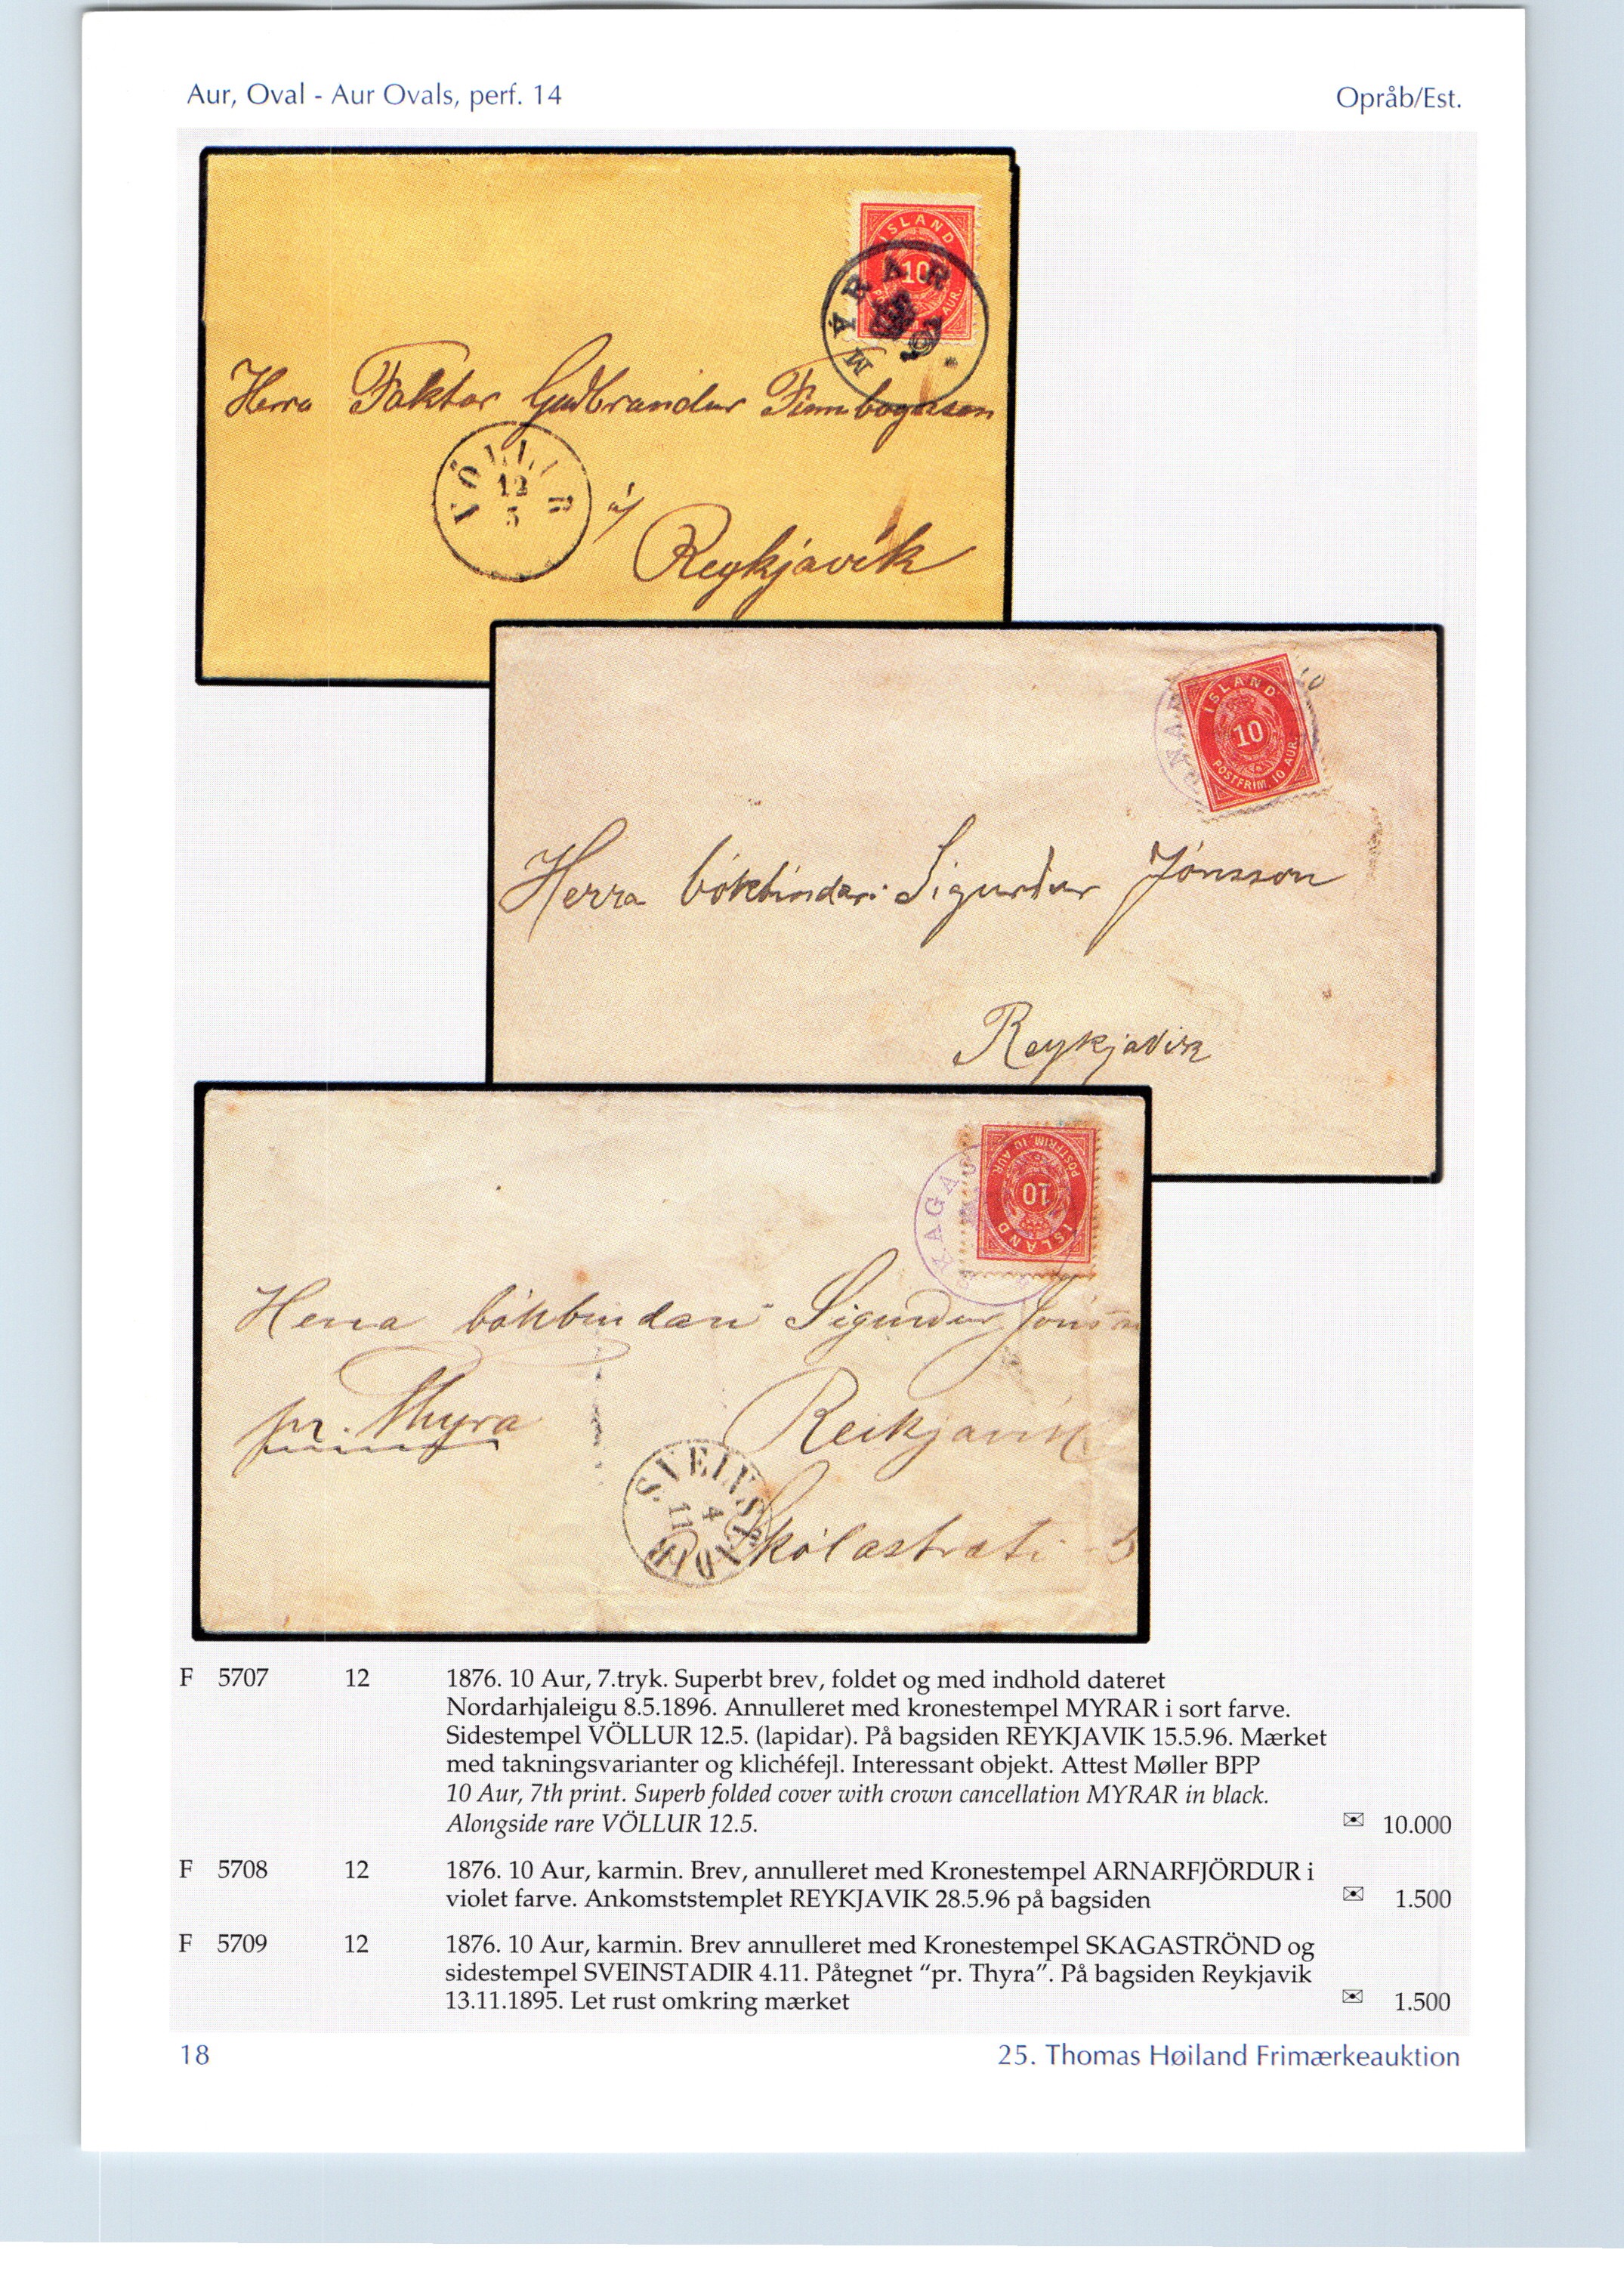 Aur, Oval - Aur Ovals, perf. 14
Opråb/Est.
ISLAND
10
AUR.
MÝRAR
Herra Faktor Guðbrandur Finnbogason
VÖLLUR
12
5
á/
Reykjavík
ISLAND
10
POSTFRIM. 10 AUR.
RNAR
Herra bókbindari Sigurður Jónsson
Reykjavik
POSTFRIM. 10 AUR
10
ISLAND
KAGA
Herra bókbindari Sigurdur Jónsson
pr. Thyra
Reikjavik
SVEINSTADIR
4
11
Skólastræti 3
F 5707 12 1876. 10 Aur, 7.tryk. Superbt brev, foldet og med indhold dateret
Nordarhjaleigu 8.5.1896. Annulleret med kronestempel MYRAR i sort farve.
Sidestempel VÖLLUR 12.5. (lapidar). På bagsiden REYKJAVIK 15.5.96. Mærket
med takningsvarianter og klichéfejl. Interessant objekt. Attest Møller BPP
10 Aur, 7th print. Superb folded cover with crown cancellation MYRAR in black.
Alongside rare VÖLLUR 12.5. ✉ 10.000
F 5708 12 1876. 10 Aur, karmin. Brev, annulleret med Kronestempel ARNARFJÖRDUR i
violet farve. Ankomststemplet REYKJAVIK 28.5.96 på bagsiden ✉ 1.500
F 5709 12 1876. 10 Aur, karmin. Brev annulleret med Kronestempel SKAGASTRÖND og
sidestempel SVEINSTADIR 4.11. Påtegnet "pr. Thyra". På bagsiden Reykjavik
13.11.1895. Let rust omkring mærket ✉ 1.500
18
25. Thomas Høiland Frimærkeauktion